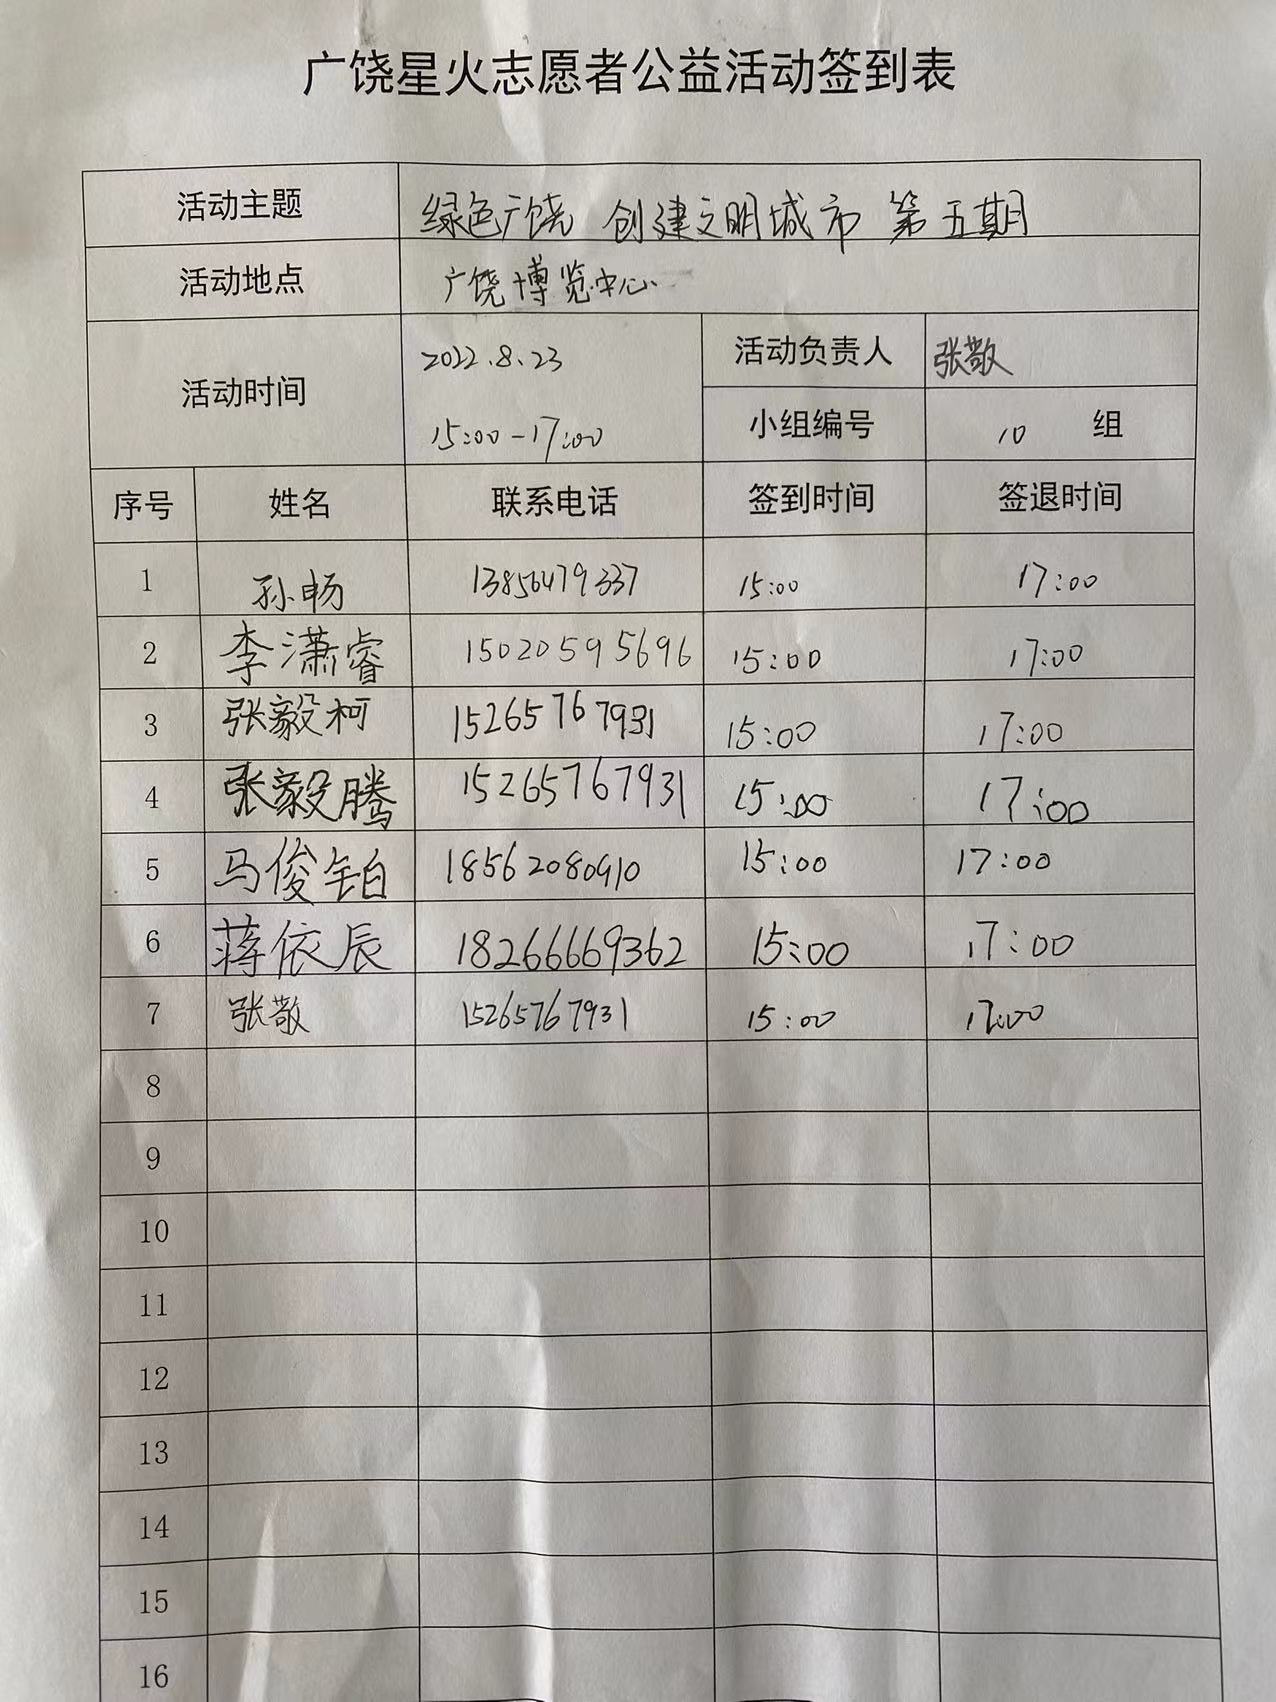 广饶星火志愿者公益活动签到表
活动主题 绿色广饶 创建文明城市 第五期
活动地点 广饶博览中心
活动时间 2022.8.23 15:00-17:00
活动负责人 张敬
小组编号 10 组
序号 姓名 联系电话 签到时间 签退时间
1 孙畅 13856479337 15:00 17:00
2 李潇睿 15020595696 15:00 17:00
3 张毅柯 15265767931 15:00 17:00
4 张毅腾 15265767931 15:00 17:00
5 马俊铂 18562080910 15:00 17:00
6 蒋依辰 18266669362 15:00 17:00
7 张敬 15265767931 15:00 17:00
8
9
10
11
12
13
14
15
16